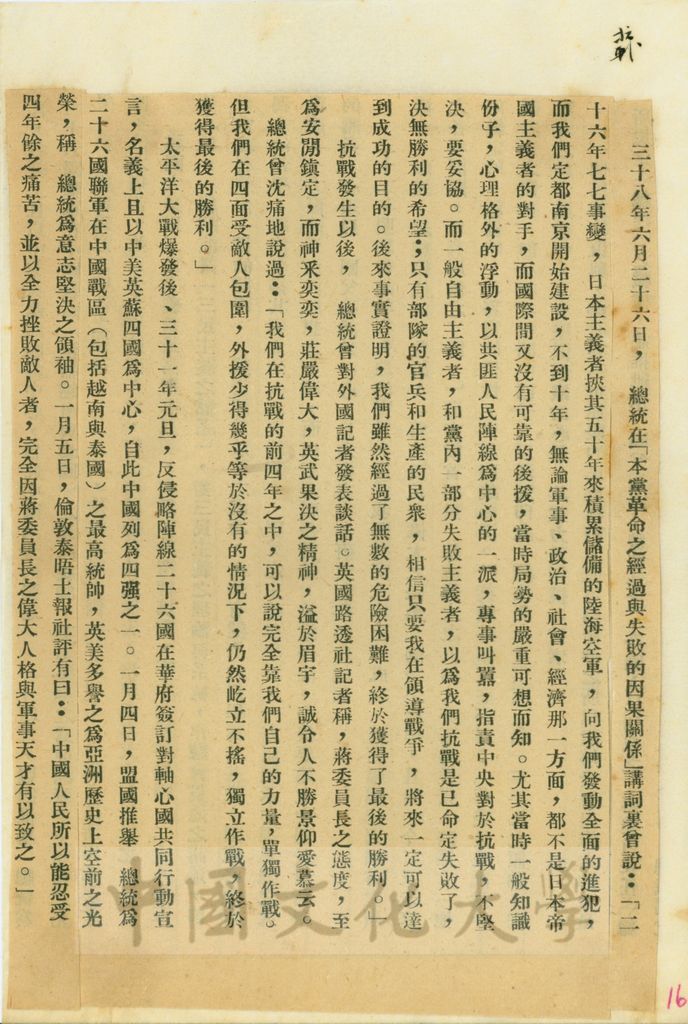 抗戰
三十八年六月二十六日，　總統在「本黨革命之經過與失敗的因果關係」講詞裏曾說：「二
十六年七七事變，日本主義者挾其五十年來積累儲備的陸海空軍，向我們發動全面的進犯，
而我們定都南京開始建設，不到十年，無論軍事、政治、社會、經濟那一方面，都不是日本帝
國主義者的對手，而國際間又沒有可靠的後援，當時局勢的嚴重可想而知。尤其當時一般知識
份子，心理格外的浮動，以共匪人民陣線爲中心的一派，專事叫囂，指責中央對於抗戰，不堅
決，要妥協。而一般自由主義者，和黨內一部分失敗主義者，以爲我們抗戰是已命定失敗了，
決無勝利的希望；只有部隊的官兵和生產的民衆，相信只要我在領導戰爭，將來一定可以達
到成功的目的。後來事實證明，我們雖然經過了無數的危險困難，終於獲得了最後的勝利。」
抗戰發生以後，　總統曾對外國記者發表談話。英國路透社記者稱，蔣委員長之態度，至
爲安閒鎮定，而神釆奕奕，莊嚴偉大，英武果決之精神，溢於眉宇，誠令人不勝景仰愛慕云。
總統曾沈痛地說過：「我們在抗戰的前四年之中，可以說完全靠我們自己的力量，單獨作戰。
但我們在四面受敵人包圍，外援少得幾乎等於沒有的情況下，仍然屹立不搖，獨立作戰，終於
獲得最後的勝利。」
太平洋大戰爆發後、三十一年元旦，反侵略陣線二十六國在華府簽訂對軸心國共同行動宣
言，名義上且以中美英蘇四國爲中心，自此中國列爲四强之一。一月四日，盟國推舉　總統爲
二十六國聯軍在中國戰區（包括越南與泰國）之最高統帥，英美多譽之爲亞洲歷史上空前之光
榮，稱　總統爲意志堅決之領袖。一月五日，倫敦泰晤士報社評有曰：「中國人民所以能忍受
四年餘之痛苦，並以全力挫敗敵人者，完全因蔣委員長之偉大人格與軍事天才有以致之。」
中國文化大學
16